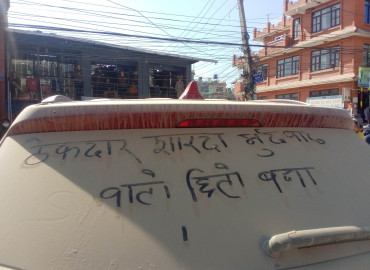 ठेकदार शारदा र्मुदावाद
बाटो छिटो बना
।